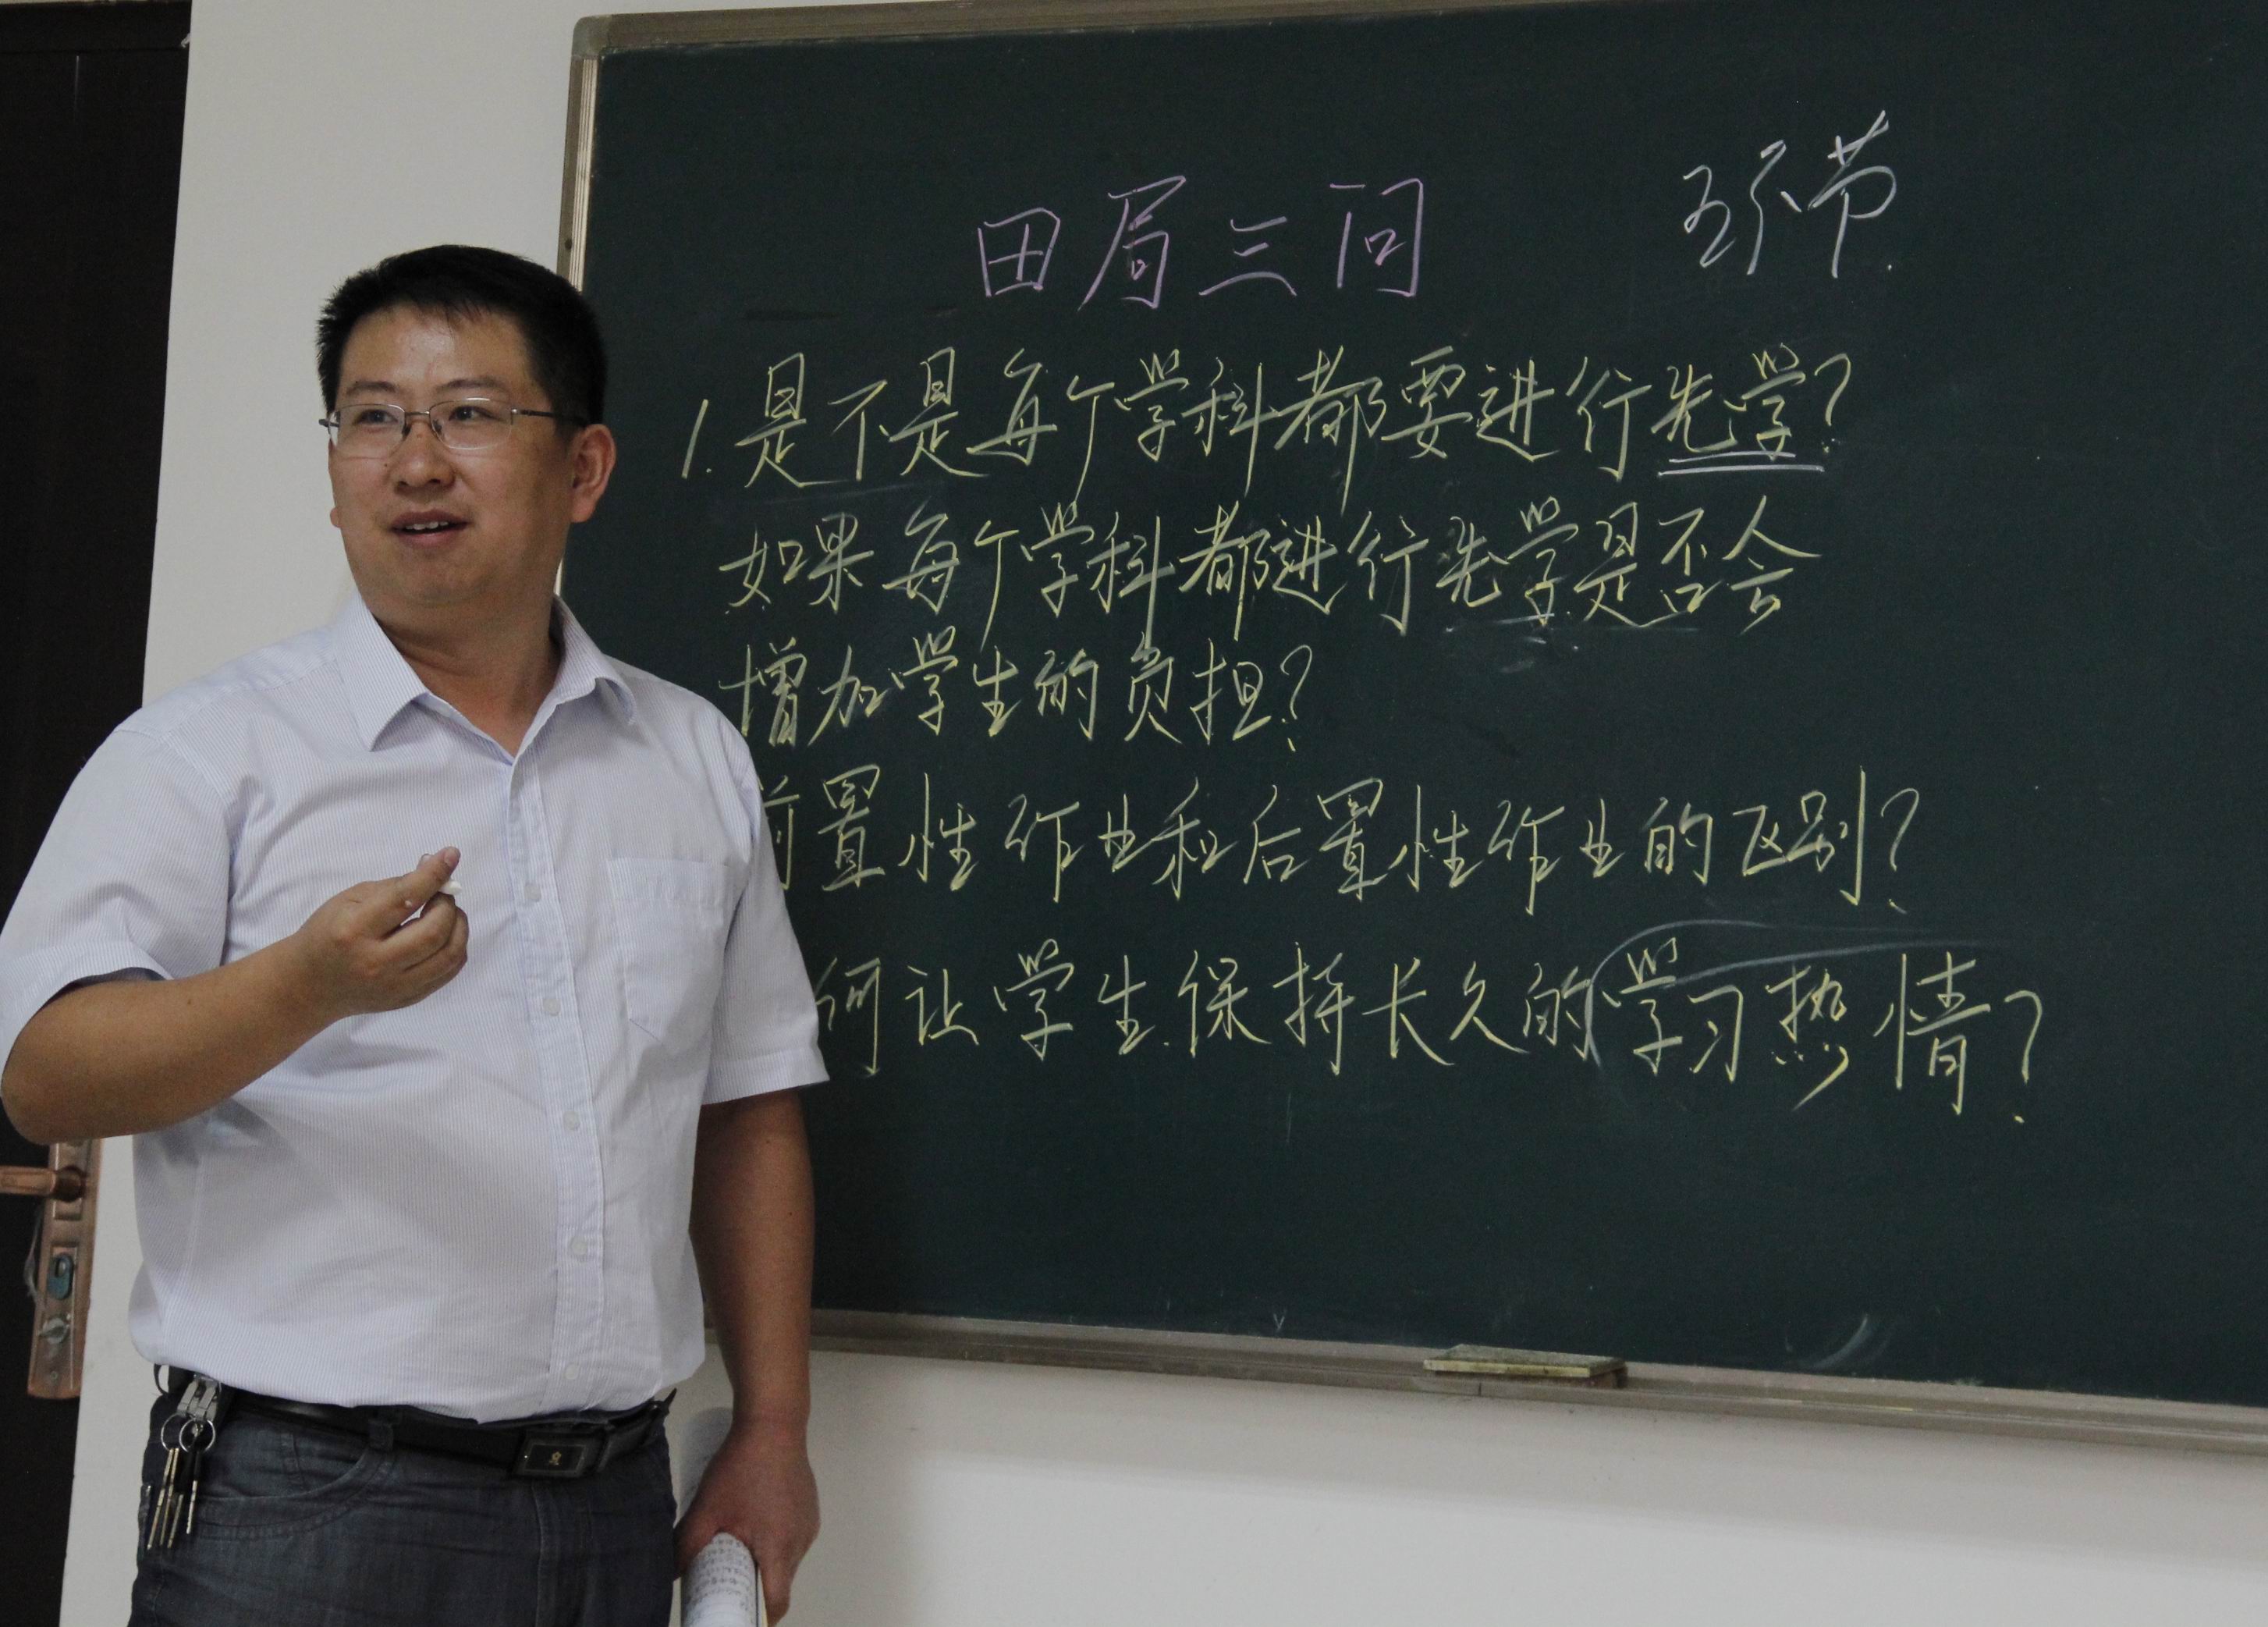 田局三问 五环节
1.是不是每个学科都要进行先学?
如果每个学科都进行先学是否会
增加学生的负担?
前置性作业和后置性作业的区别?
何让学生保持长久的学习热情?